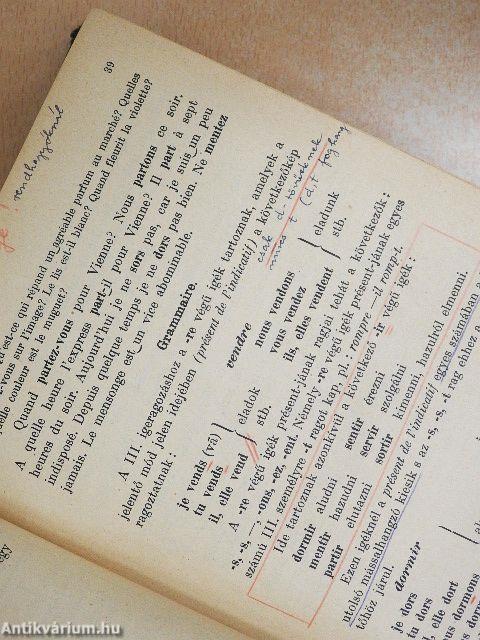 39
rendhagyóknál
qu'est-ce qui répand un agréable parfum au marché? Quelles
-vous sur l'image? Le lis est-il blanc? Quand fleurit la violette?
quelle couleur est le muguet?
Quand partez-vous pour Vienne? Nous partons ce soir.
A quelle heure l'express part-il pour Vienne? Il part à sept
heures du soir. Aujourd'hui je ne sors pas, car je suis un peu
indisposé. Depuis quelque temps je ne dors pas bien. Ne mentez
jamais. Le mensonge est un vice abominable.
Grammaire.
A III. igeragozáshoz a -re végű igék tartoznak, amelyek a
jelentő mód jelen idejében (présent de l'indicatif) a következőkép
ragoztatnak:
csak d. t
nincs t (d, t
vendre
je vends (vã)
tu vends
il, elle vend
eladok
stb.
nous vendons
vous vendez
ils, elles vendent
eladunk
stb.
A -re végű igék présent-jának ragjai tehát a következők:
-s, -s, —, -ons, -ez, -ent. Némely -re végű igék présent-jának egyes
számú III. személyre -t ragot kap, pl. rompre —il romp-t.
Ide tartoznak azonkívül a következő -ir végű igék:
dormir aludni
mentir hazudni
partir elutazni
sentir érezni
servir szolgálni
sortir kimenni, hazulról elmenni.
Ezen igéknél a présent de l'indicatif egyes számában a
utolsó mássalhangzó kiesik s az -s, -s, -t rag ehhez a
tőhöz járul.
dormir
je dors
tu dors
elle dort
dormons
egy
Antikvárium.hu